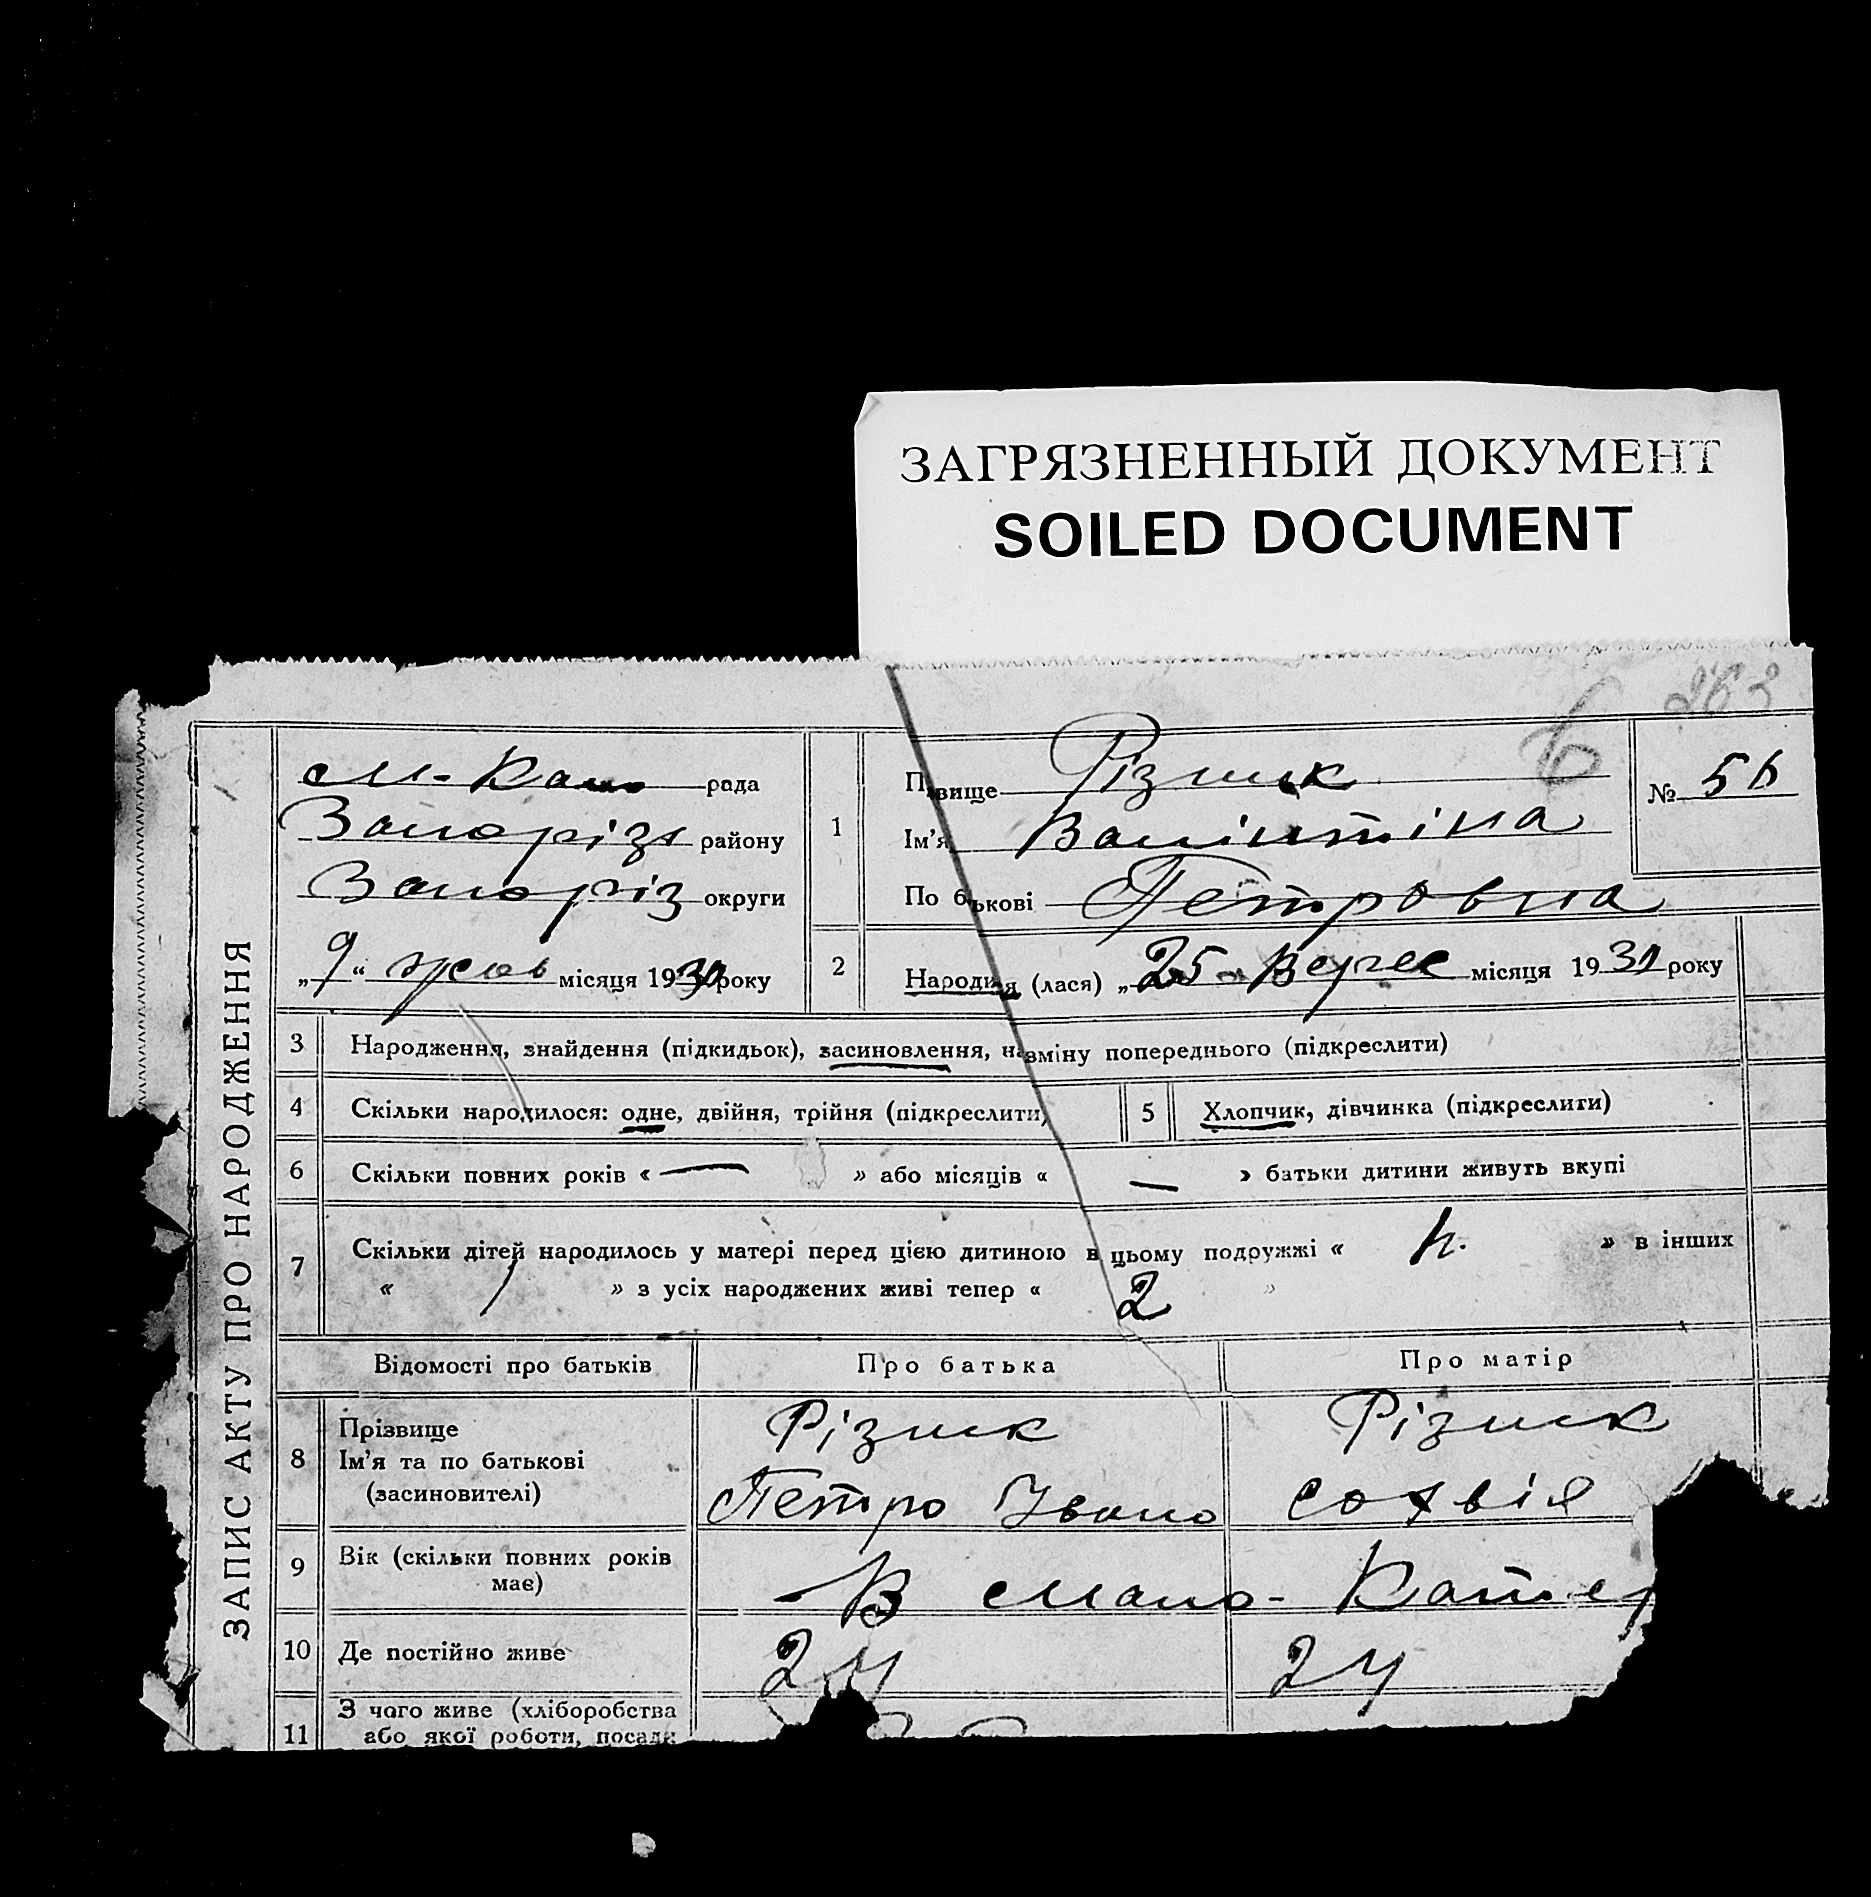 ЗАГРЯЗНЕННЫЙ ДОКУМЕНТ
SOILED DOCUMENT
263
ЗАПИС АКТУ ПРО НАРОДЖЕННЯ
рада
Запоріз району
Запоріз округи
„9“ жов місяця 19 року
1
П вище Різник
Ім'я Валінтіна
По б ькові Петровна
№ 56
2
Народи я (лася) „25 Верес місяця 1931 року
3 Народження, знайдення (підкидьок), засиновлення, н зміну попереднього (підкреслити)
4 Скільки народилося: одне, двійня, трійня (підкреслити)
5 Хлопчик, дівчинка (підкреслити)
6 Скільки повних років « — » або місяців « — » батьки дитини живуть вкупі
7 Скільки дітей народилось у матері перед цією дитиною в цьому подружжі « » в інших
« » з усіх народжених живі тепер « 2 »
Відомості про батьків Про батька Про матір
8 Прізвище
Ім'я та по батькові
(засиновителі)
Різник Різник
Петро Івано Софвія
9 Вік (скільки повних років
має)
В
10 Де постійно живе 24 24
11 З чого живе (хліборобства
або якої роботи, посади